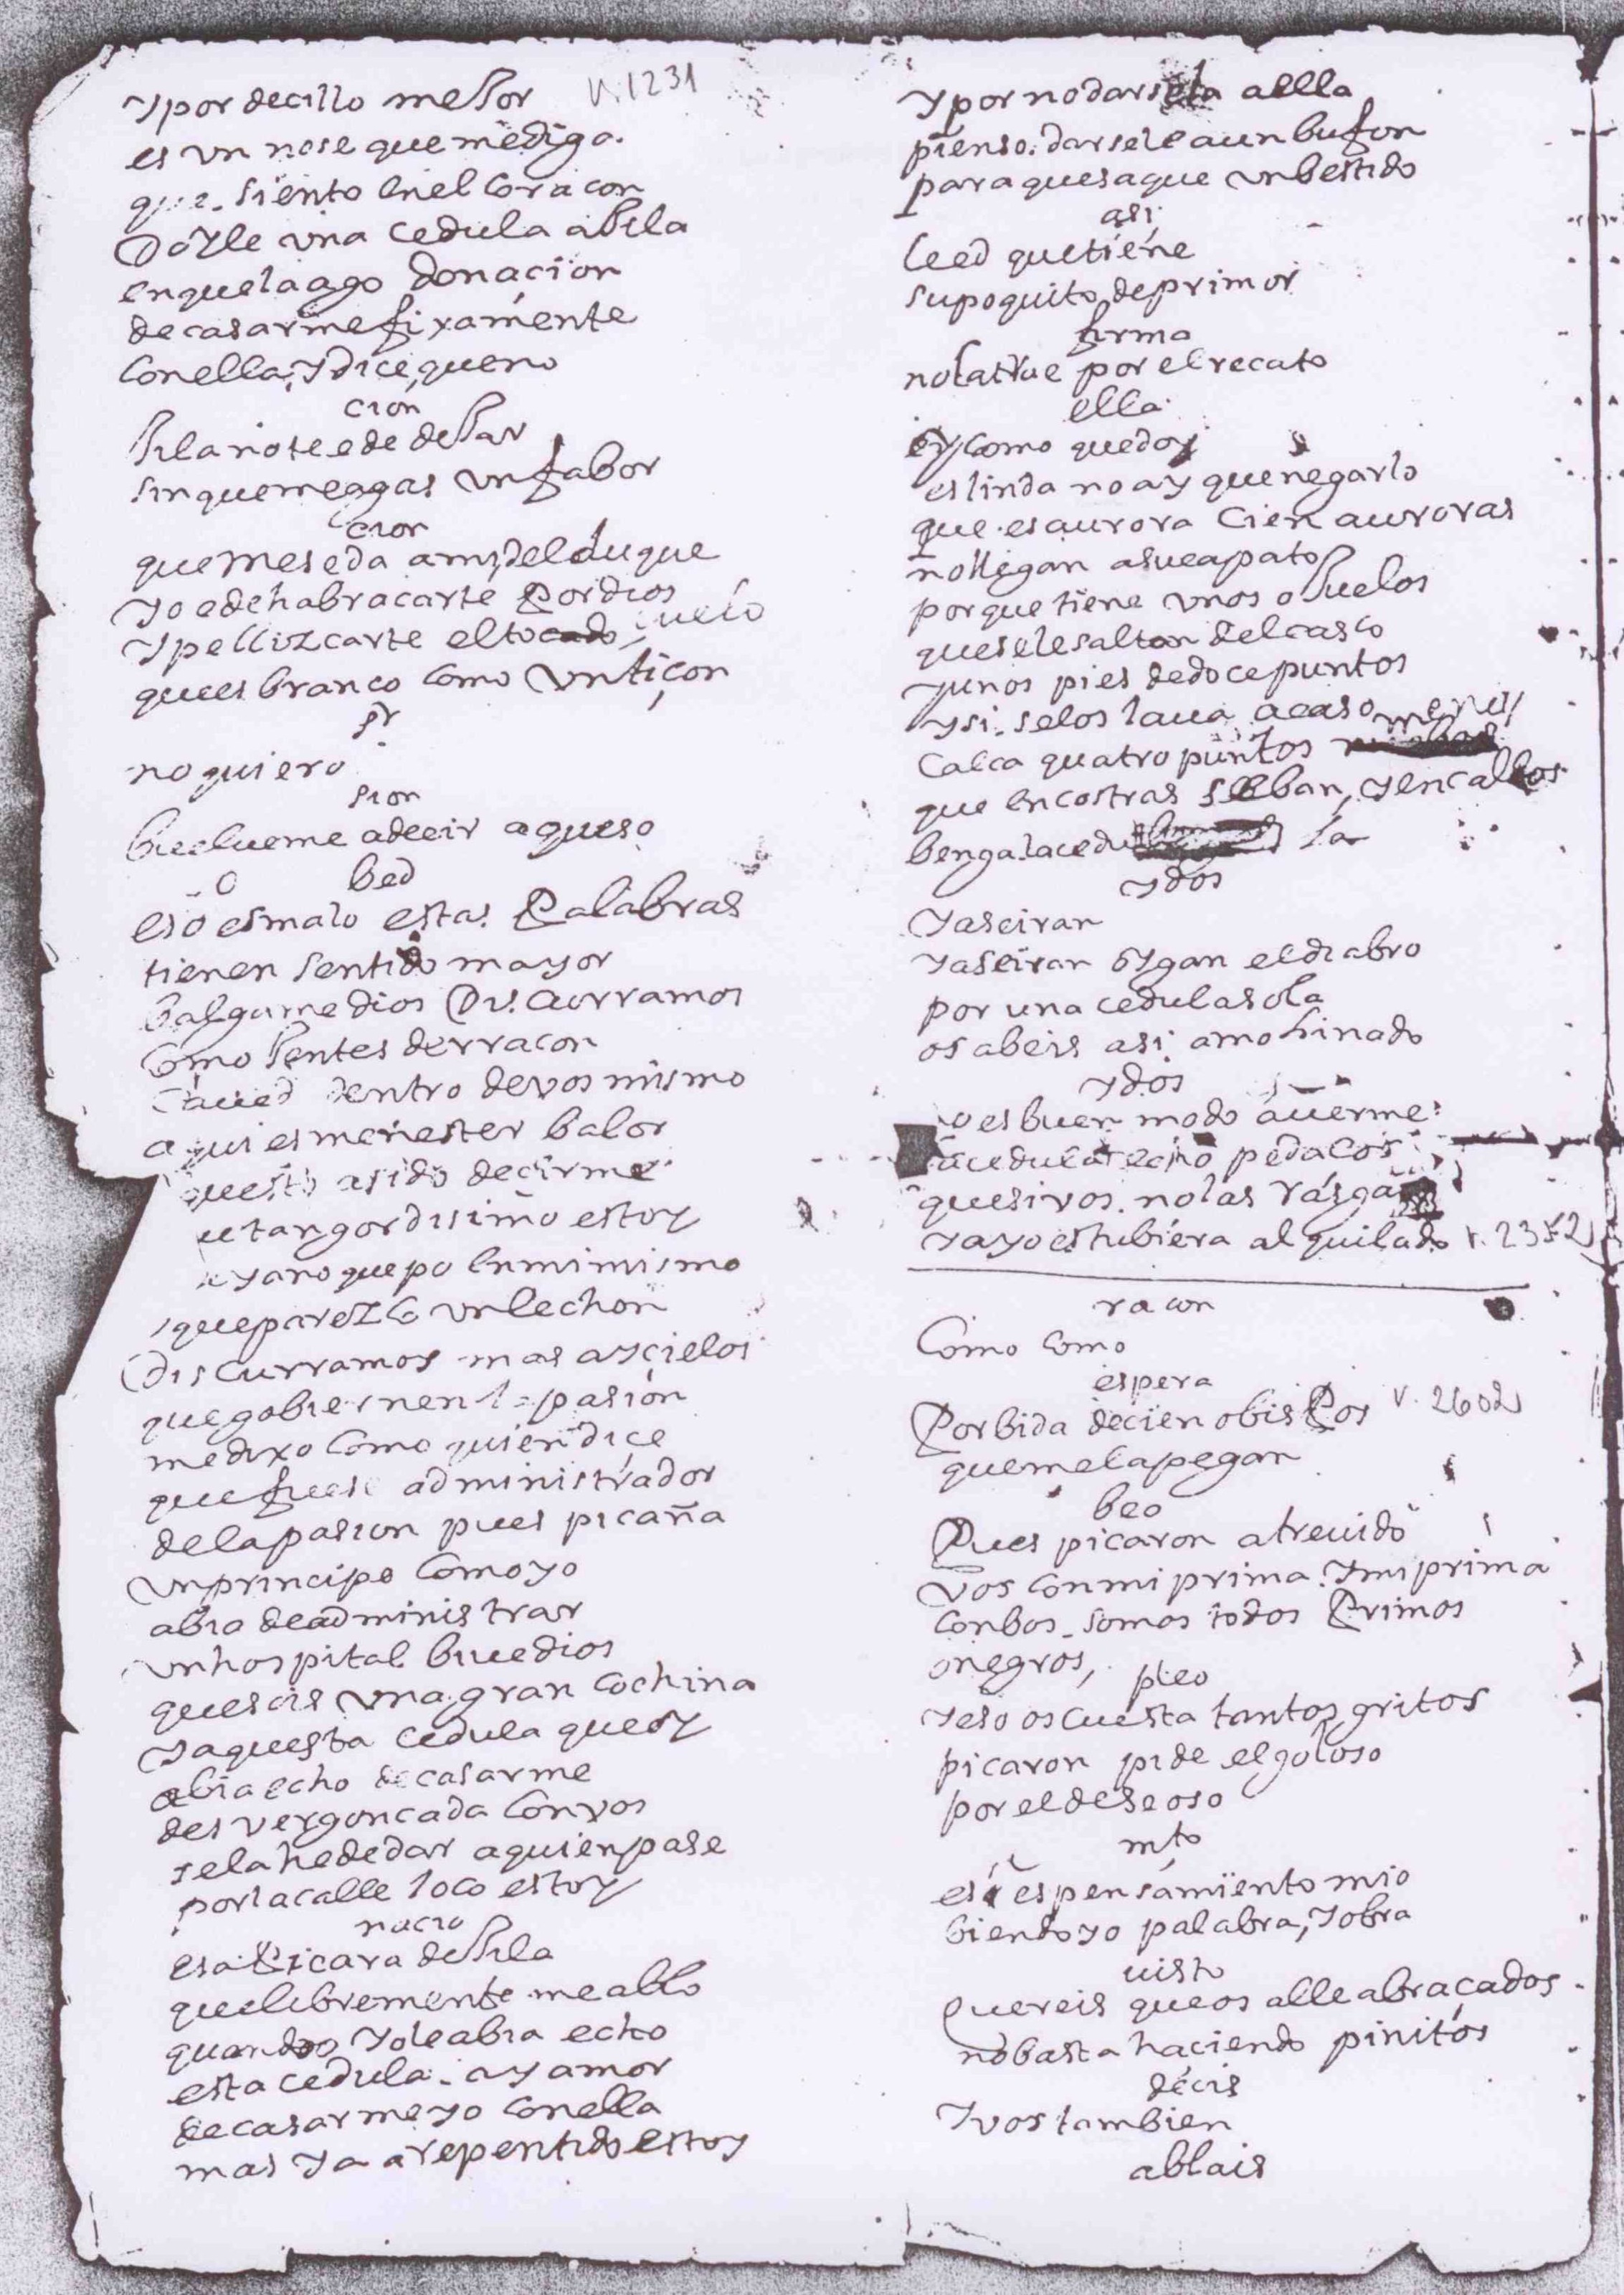 v. 1231
Y por decillo mejor
es un nose que mediga.
que siento enel coracon
Doyle una cedula a bila
enquelaago donacion
decasarme fixamente
Conella, y dice, queno
cion
jila note e de dejar
sinquemeagas un fabor
cion
quemeseda ami, del duque
yo edehabracarte Pordios
y pellizcarte eltocado
quees branco como un ticon
sr
no quiero
sion
buelueme adecir aqueso
bed
eso esmalo estas Palabras
tienen sentido mayor
balgame dios Discurramos
como jentes derracon
Caued dentro devos mismo
aqui esmenester balor
questo asido decirme
ue tan gordisimo estoy
ya no quepo enmimismo
queparezco un lechon
Discurramos mas ay cielos
que gobiernen la pasion
medixo como quien dice
que fuese administrador
dela pasion pues picaña
un principe como yo
abia deadministrar
un hospital biue dios
quesois una gran cochina
Y aquesta cedula que oy
abia echo decasarme
desvergoncada con vos
sela hededar a quien pase
por la calle loco estoy
nacio
esa Picara de jila
que libremente me ablo
quando yo le abia echo
esta cedula. ay amor
decasarme yo conella
mas ya arepentido estoy
Y por no darsela allla
pienso. darsele aun bufon
para quesaque un bestido
asi
leed que tiene
su poquito de primor
firma
notatrue por el recato
ella
oy como quedoy
es linda no ay que negarlo
que es aurora Cien auroras
no llegan asucapato
porque tiene unos ojuelos
queselesaltan delcasco
yunos pies dedoce puntos
y si selos laua acaso
Calca quatro puntos menos
que en costras se ban, y en callos
benga la cedula
ydos
Yaseiran
Yaseiran oygan el diabro
por una cedula sola
os abeis asi amohinado
ydos
no es buen modo auerme
la cedula echo pedacos
quesivos. nolas rasgais
ya yo estubiera alquilado v. 2352
racon
Como como
espera
Por bida decien obisPos v. 2602
quemelapegan
beo
Pues picaron atreuido
Vos conmi prima. Ymi prima
conbos. somos todos Primos
onegros,
pleo
Yeso os cuesta tantos gritos
picaron pide el goloso
por el deseoso
mto
ese es pensamiento mio
biendo yo palabra, y obra
uisto
quereis que os alle abracados
no basta haciendo pinitos
decis
Y vos tambien
ablais